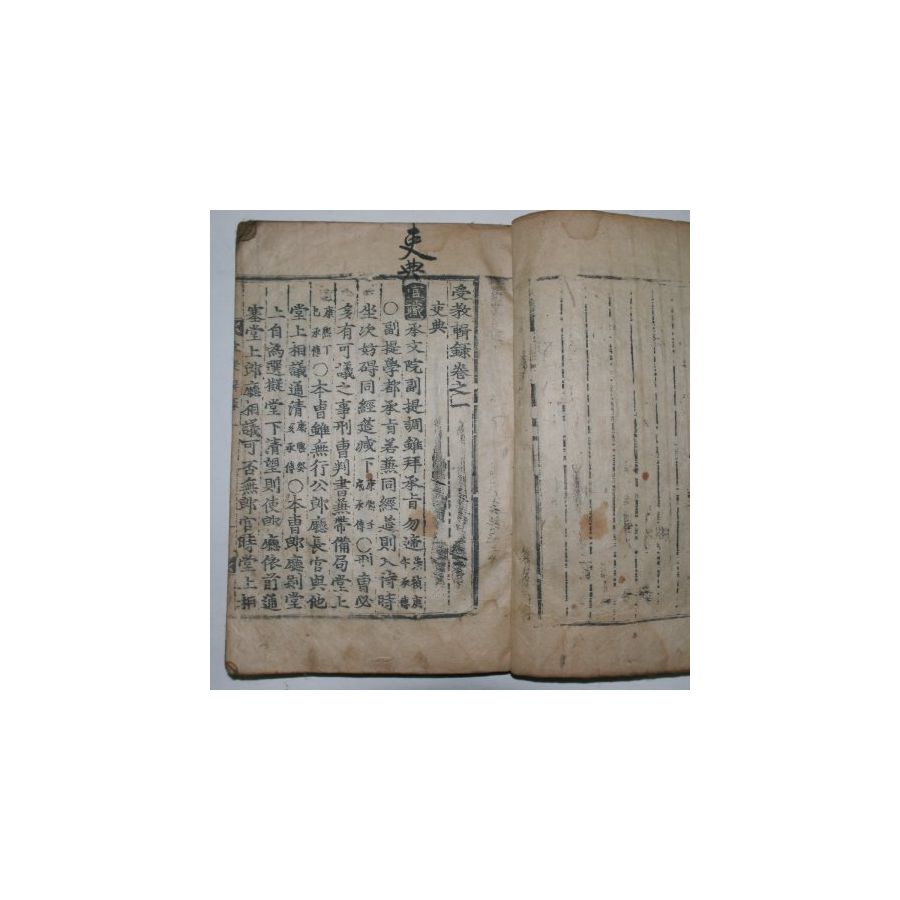 吏典
受教輯錄卷之一
吏典
官職 承文院副提調雖拜承旨勿遞 崇禎庚午承傳
○副提學都承旨若兼同經筵則入侍時
坐次妨碍同經筵減下 康熙壬承傳 ○刑曹必
多有可議之事刑曹判書兼帶備局堂上
康熙丁巳承傳 ○本曹雖無行公郎廳長官與他
堂上相議通清 康熙癸亥承傳 ○本曹郎廳則堂
上自為選擬堂下清望則使郎廳依前通
塞堂上郎廳相議可否無郎官時堂上相